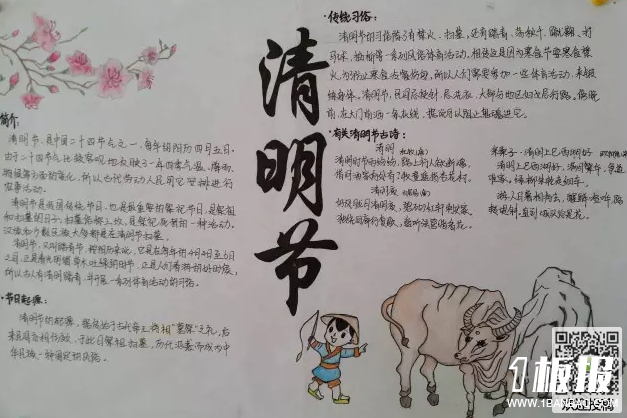 清明节
简介
清明节,是中国二十四节气之一,每年阳历四月五日,
由于二十四节气比较客观地反映了一年四季气温、降雨、
物候等方面的变化,所以古代劳动人民用它安排进行
农事活动。
清明节是我国传统节日,也是最重要的祭祀节日,是祭祖
和扫墓的日子。扫墓俗称上坟,是祭祀死者的一种活动。
汉族和少数民族大多都是在清明节扫墓。
清明节,又叫踏青节,按阳历来说,它是在每年的4月4日至6日
之间,正是春光明媚草木吐绿的时节,正是人们春游的好时候,
所以古人有清明踏青、并开展一系列体育活动的习俗。
·节日起源:
清明节的起源,据传始于古代帝王将相“墓祭”之礼,后
来民间亦相仿效,于此日祭祖扫墓,历代沿袭而成为中
华民族一种固定的风俗。
·传统习俗:
清明节的习俗除了有禁火、扫墓,还有踏青、荡秋千、蹴鞠、打
马球、插柳等一系列风俗体育活动。相传这是因为寒食节要寒食禁
火,为防止寒食冷餐伤身,所以人们需要参加一些体育活动,来锻
炼身体。清明节,民间忌使针,忌洗衣,大部分地区妇女忌行路。傍晚
前,在大门前洒一条灰线,据说可以阻止鬼魂进宅。
·有关清明节古诗:
清明 杜牧(唐)
清明时节雨纷纷,路上行人欲断魂。
借问酒家何处有?牧童遥指杏花村。
清明夜
独绕回廊行复歇,遥听弦管暗看花。
采桑子·清明上巳西湖好 欧阳修
清明上巳西湖好,满目繁华,争道
谁家,绿柳朱轮走钿车。
游人日暮相将去,醒醉喧哗,路
转堤斜,直到城头总是花。
1板报
WWW.1BANBAO.COM
欢迎投稿